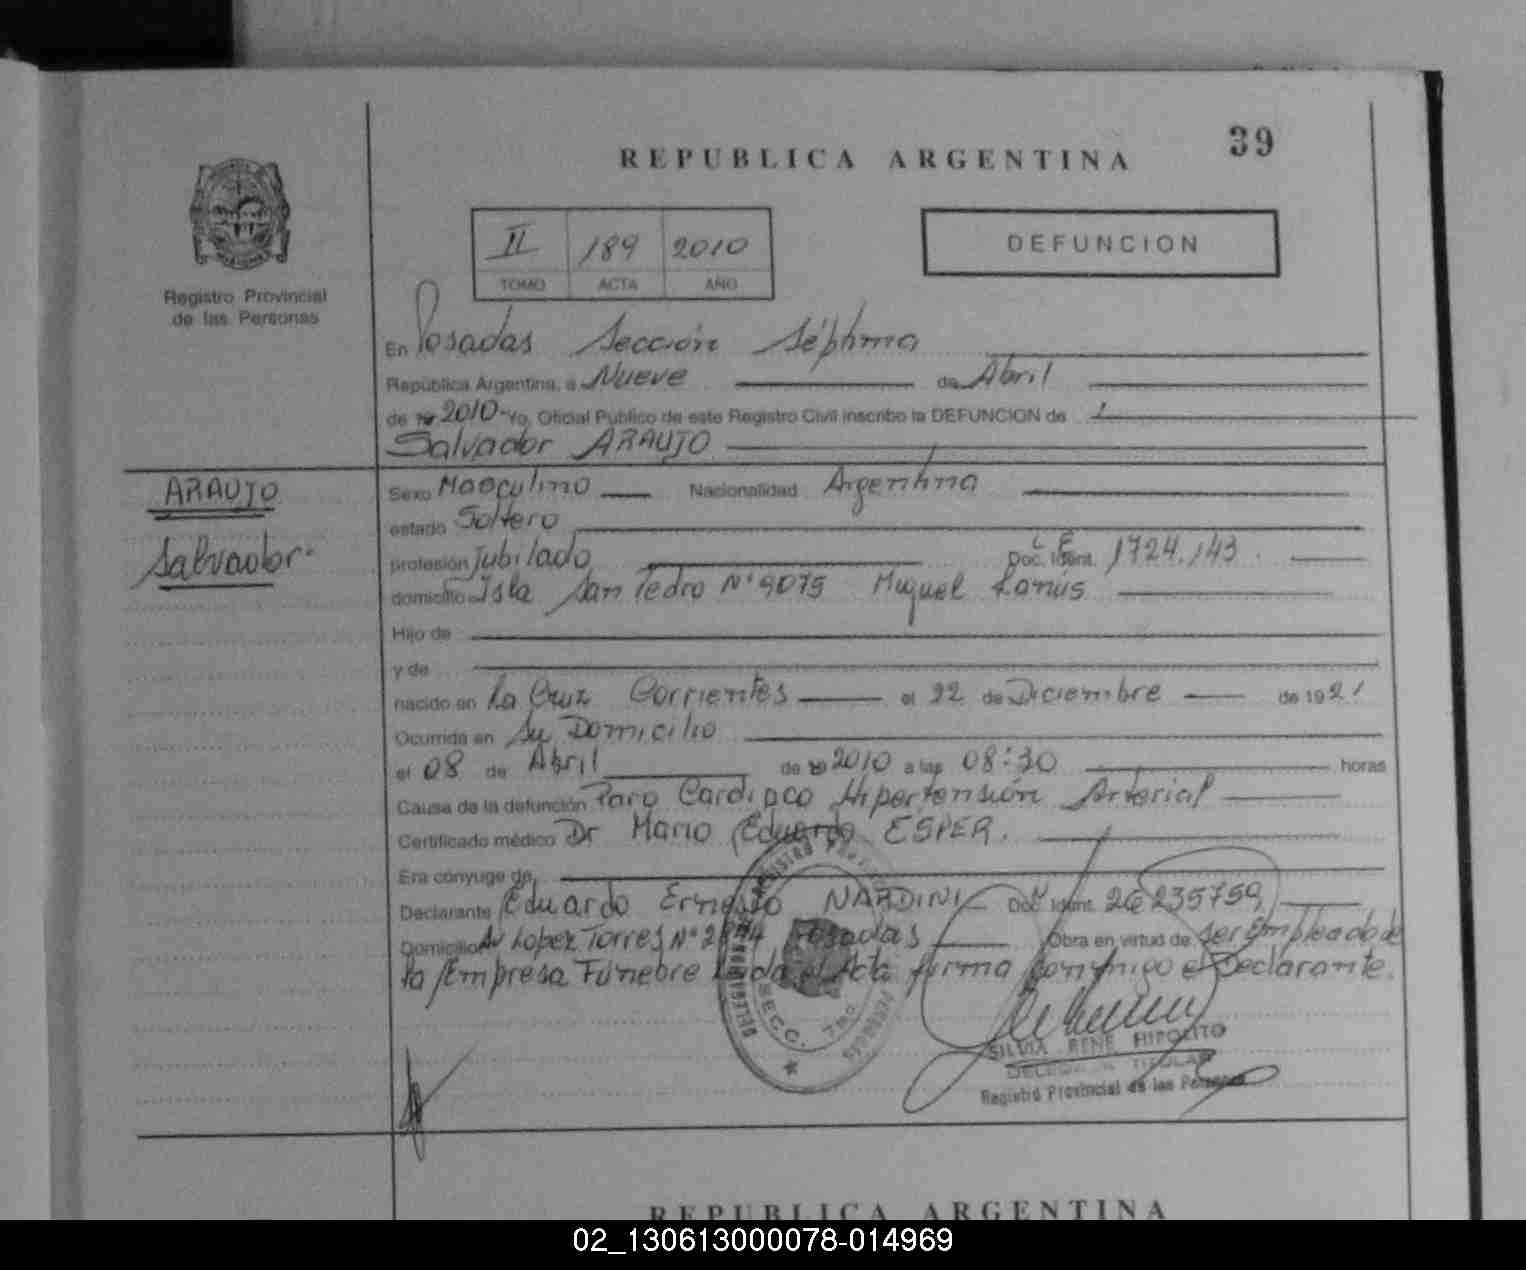 39
REPUBLICA ARGENTINA
II 189 2010
TOMO ACTA AÑO
DEFUNCION
Registro Provincial
de las Personas
En Posadas Sección Séptima
República Argentina, a Nueve de Abril
de 19 2010 Yo, Oficial Público de este Registro Civil inscribo la DEFUNCION de
Salvador ARAUJO
ARAUJO
Salvador
Sexo Masculino Nacionalidad Argentina
estado Soltero
profesión Jubilado Doc. Ident. L E 1724.143
domicilio Isla San Pedro N° 9075 Miguel Lanús
Hijo de
y de
nacido en La Cruz Corrientes el 22 de Diciembre de 1921
Ocurrida en Su Domicilio
el 08 de Abril de 19 2010 a las 08:30 horas
Causa de la defunción Paro Cardiaco Hipertensión Arterial
Certificado médico Dr Mario Eduardo ESPER.
Era cónyuge de
Declarante Eduardo Ernesto NARDINI Doc. Ident. 26235759
Domicilio Av Lopez Torres N° Posadas Obra en virtud de ser Empleado de
la Empresa Fúnebre Leida el Acta firma conmigo el Declarante.
SECC. 7ma
SILVIA RENE HIPOLITO
DELEGADA TITULAR
Registro Provincial de las Personas
REPUBLICA ARGENTINA
02_130613000078-014969